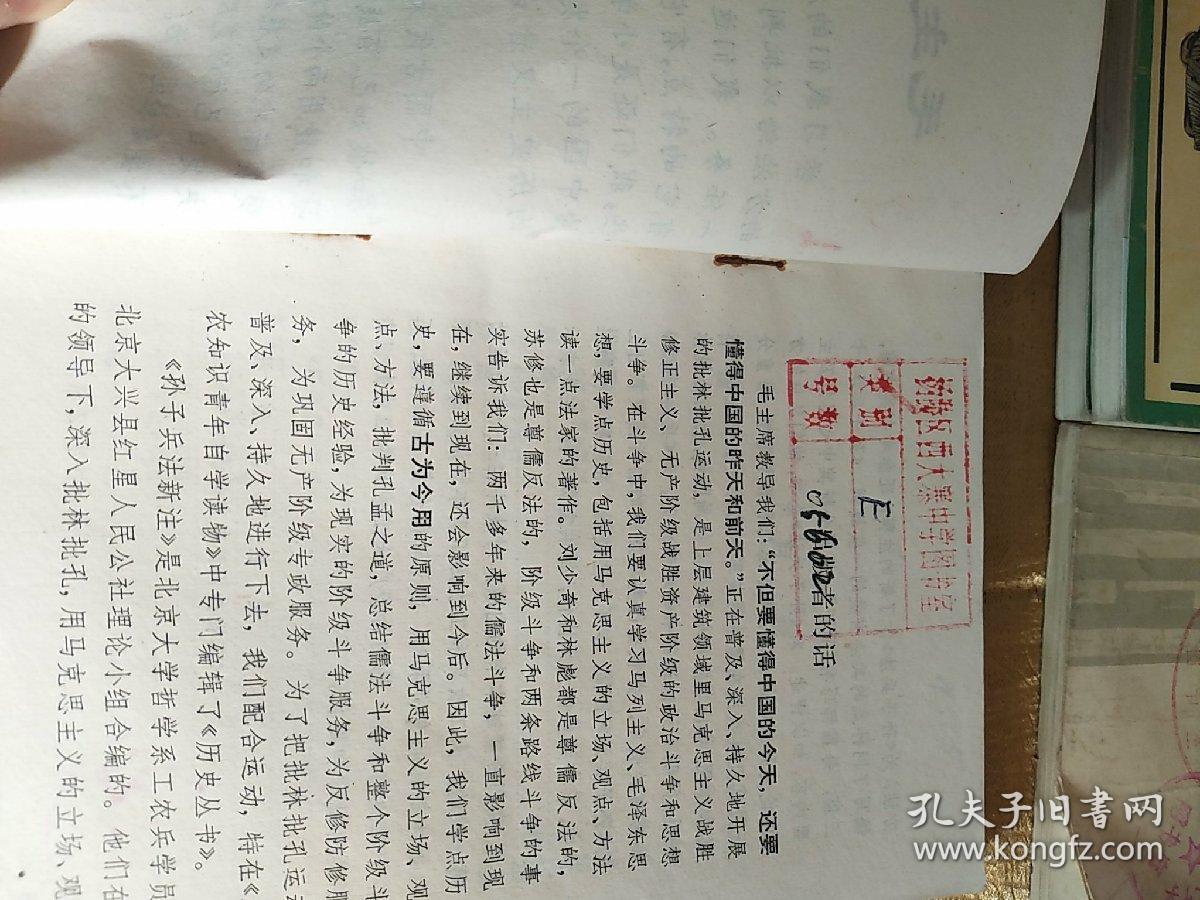 杨陵区西大寨中学图书室
类别
E
号数
出版者的话
毛主席教导我们：“不但要懂得中国的今天，还要
懂得中国的昨天和前天。”正在普及、深入、持久地开展
的批林批孔运动，是上层建筑领域里马克思主义战胜
修正主义、无产阶级战胜资产阶级的政治斗争和思想
斗争。在斗争中，我们要认真学习马列主义、毛泽东思
想，要学点历史，包括用马克思主义的立场、观点、方法
读一点法家的著作。刘少奇和林彪都是尊儒反法的，
苏修也是尊儒反法的，阶级斗争和两条路线斗争的事
实告诉我们：两千多年来的儒法斗争，一直影响到现
在，继续到现在，还会影响到今后。因此，我们学点历
史，要遵循古为今用的原则，用马克思主义的立场、观
点、方法，批判孔孟之道，总结儒法斗争和整个阶级斗
争的历史经验，为现实的阶级斗争服务，为反修防修服
务，为巩固无产阶级专政服务。为了把批林批孔运
普及、深入、持久地进行下去，我们配合运动，特在《
农知识青年自学读物》中专门编辑了《历史丛书》。
《孙子兵法新注》是北京大学哲学系工农兵学员
北京大兴县红星人民公社理论小组合编的。他们在
的领导下，深入批林批孔，用马克思主义的立场、观
孔夫子旧书网
www.kongfz.com